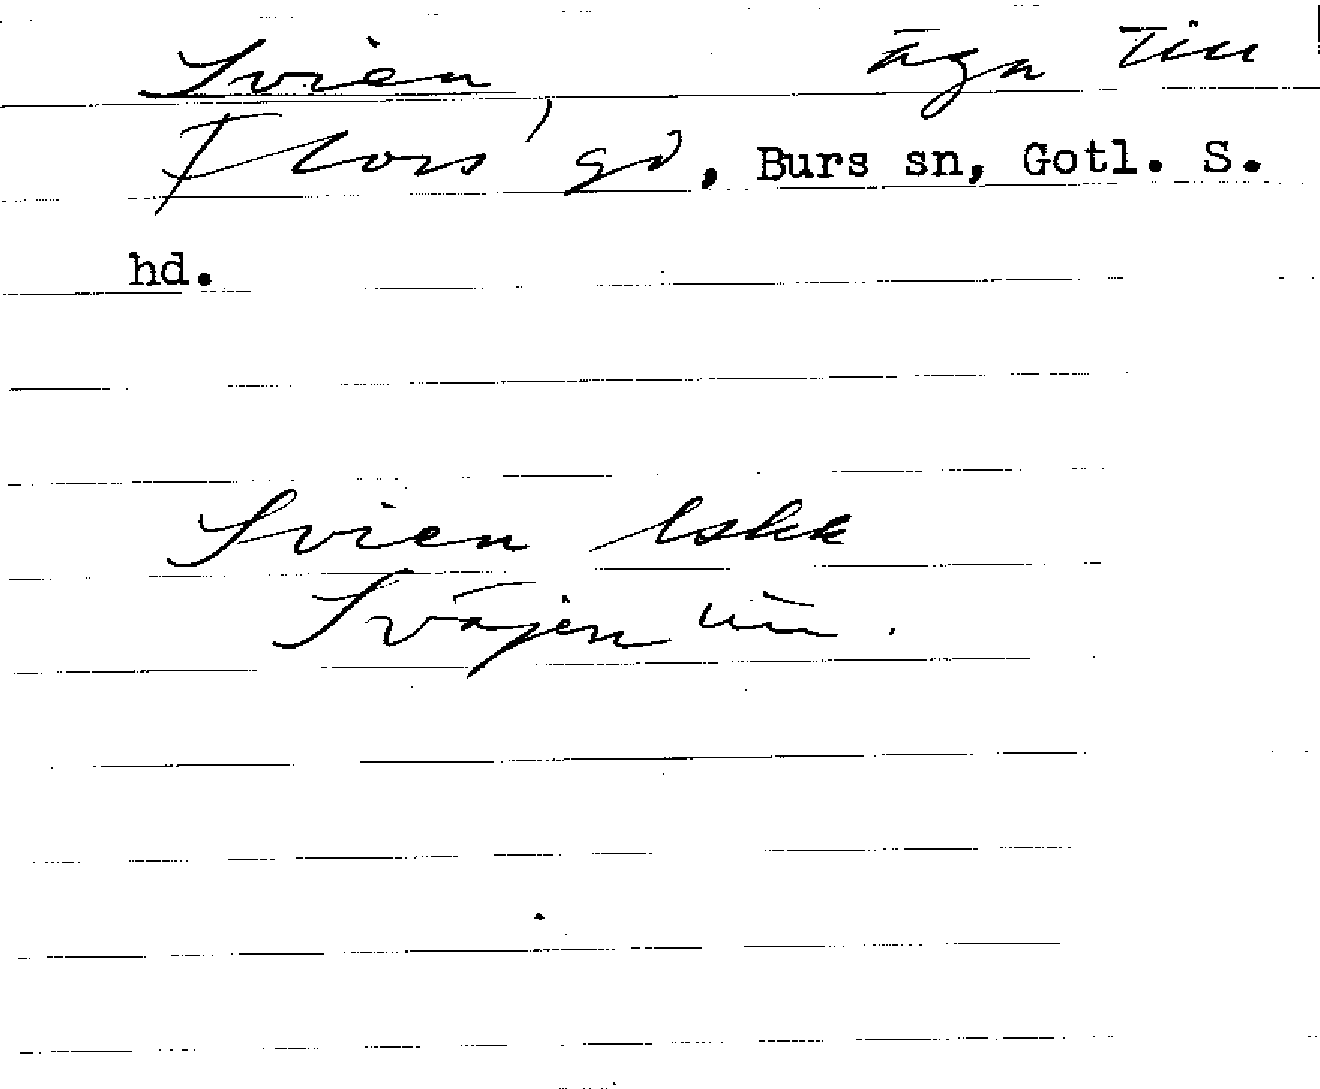 Svien, äga till
Flors gd, Burs sn, Gotl. S.
hd.
Svien Eskk
Sväjen